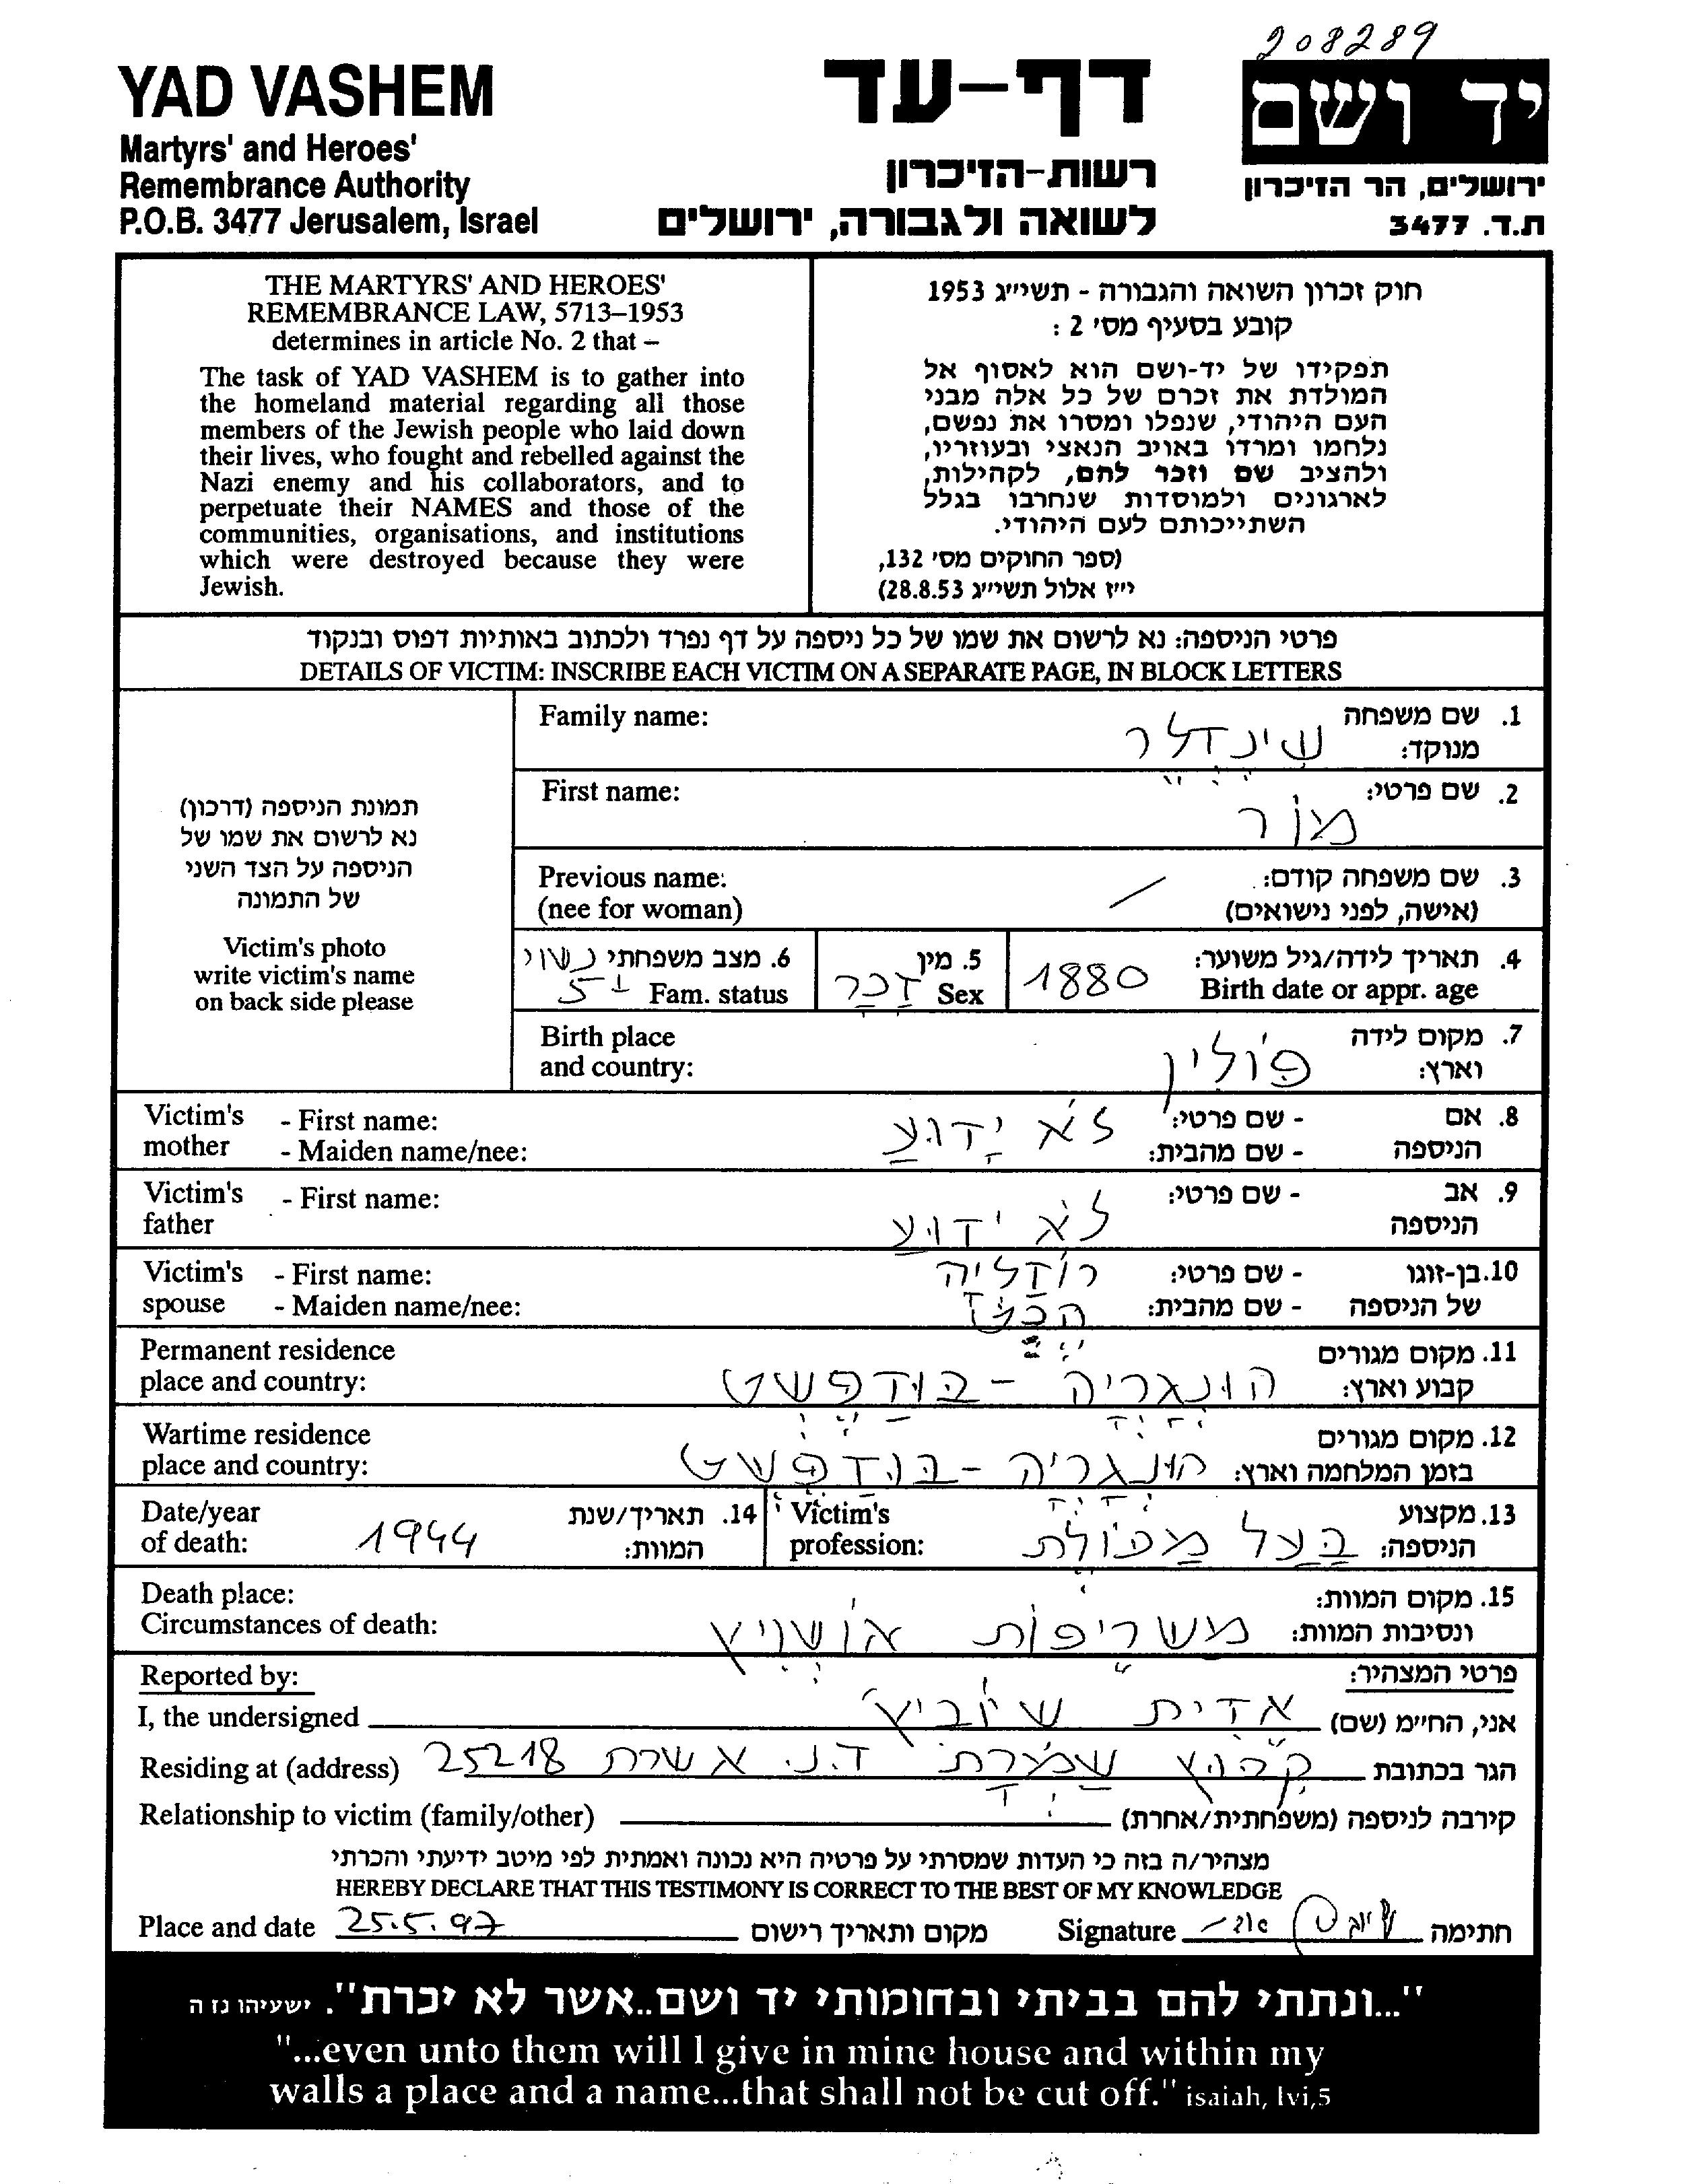 208289
YAD VASHEM
Martyrs' and Heroes'
Remembrance Authority
P.O.B. 3477 Jerusalem, Israel
דף-עד
רשות-הזיכרון
לשואה ולגבורה, ירושלים
יד ושם
ירושלים, הר הזיכרון
ת.ד. 3477
THE MARTYRS' AND HEROES'
REMEMBRANCE LAW, 5713–1953
determines in article No. 2 that –
The task of YAD VASHEM is to gather into
the homeland material regarding all those
members of the Jewish people who laid down
their lives, who fought and rebelled against the
Nazi enemy and his collaborators, and to
perpetuate their NAMES and those of the
communities, organisations, and institutions
which were destroyed because they were
Jewish.
חוק זכרון השואה והגבורה - תשי״ג 1953
קובע בסעיף מס׳ 2 :
תפקידו של יד-ושם הוא לאסוף אל
המולדת את זכרם של כל אלה מבני
העם היהודי, שנפלו ומסרו את נפשם,
נלחמו ומרדו באויב הנאצי ובעוזריו,
ולהציב שם וזכר להם, לקהילות,
לארגונים ולמוסדות שנחרבו בגלל
השתייכותם לעם היהודי.
(ספר החוקים מס׳ 132,
י״ז אלול תשי״ג 28.8.53)
פרטי הניספה: נא לרשום את שמו של כל ניספה על דף נפרד ולכתוב באותיות דפוס ובנקוד
DETAILS OF VICTIM: INSCRIBE EACH VICTIM ON A SEPARATE PAGE, IN BLOCK LETTERS
תמונת הניספה (דרכון)
נא לרשום את שמו של
הניספה על הצד השני
של התמונה
Victim's photo
write victim's name
on back side please
Family name: שינדלר 1. שם משפחה
מנוקד:
First name: מור 2. שם פרטי:
Previous name: / 3. שם משפחה קודם:
(nee for woman) (אישה, לפני נישואים)
4. תאריך לידה/גיל משוער: 1880 5. מין זכר 6. מצב משפחתי נשוי
Birth date or appr. age Sex Fam. status 5+
Birth place 7. מקום לידה
and country: פולין וארץ:
Victim's - First name: לא ידוע - שם פרטי: 8. אם
mother - Maiden name/nee: - שם מהבית: הניספה
Victim's - First name: - שם פרטי: 9. אב
father לא ידוע הניספה
Victim's - First name: רוזליה - שם פרטי: 10. בן-זוגו
spouse - Maiden name/nee: - שם מהבית: של הניספה
Permanent residence 11. מקום מגורים
place and country: הונגריה - בודפשט קבוע וארץ:
Wartime residence 12. מקום מגורים
place and country: הונגריה - בודפשט בזמן המלחמה וארץ:
Date/year 14. תאריך/שנת Victim's 13. מקצוע
of death: 1944 המוות: profession: בעל מכולת הניספה:
Death place: 15. מקום המוות:
Circumstances of death: משריפות אושויץ ונסיבות המוות:
Reported by: פרטי המצהיר:
I, the undersigned אדית שיוביץ אני, החי״מ (שם)
Residing at (address) קבוץ שמרת ד.נ. אשרת 25218 הגר בכתובת
Relationship to victim (family/other) קירבה לניספה (משפחתית/אחרת)
מצהיר/ה בזה כי העדות שמסרתי על פרטיה היא נכונה ואמתית לפי מיטב ידיעתי והכרתי
HEREBY DECLARE THAT THIS TESTIMONY IS CORRECT TO THE BEST OF MY KNOWLEDGE
Place and date 25.5.97 מקום ותאריך רישום Signature חתימה
"...ונתתי להם בביתי ובחומותי יד ושם..אשר לא יכרת". ישעיהו נז ה
"...even unto them will I give in mine house and within my
walls a place and a name...that shall not be cut off." isaiah, lvi,5